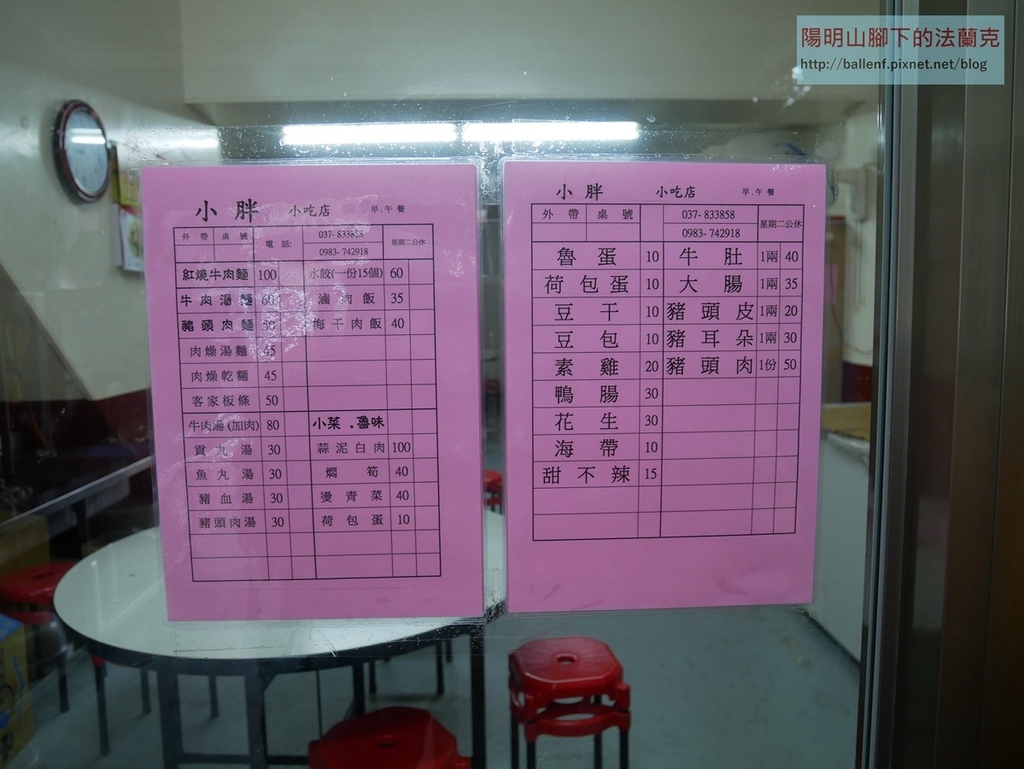 陽明山腳下的法蘭克
http://ballenf.pixnet.net/blog
小胖 小吃店 早.午餐
外帶 桌號 電話: 037-833858 星期二公休
0983-742918
紅燒牛肉麵 100 水餃(一份15個) 60
牛肉湯麵 60 滷肉飯 35
豬頭肉麵 50 梅干肉飯 40
肉燥湯麵 45
肉燥乾麵 45
客家板條 50
牛肉湯(加肉) 80 小菜.魯味
貢丸湯 30 蒜泥白肉 100
魚丸湯 30 燜筍 40
豬血湯 30 燙青菜 40
豬頭肉湯 30 荷包蛋 10
小胖 小吃店 早.午餐
外帶 桌號 037-833858 星期二公休
0983-742918
魯蛋 10 牛肚 1兩 40
荷包蛋 10 大腸 1兩 35
豆干 10 豬頭皮 1兩 20
豆包 10 豬耳朵 1兩 30
素雞 20 豬頭肉 1份 50
鴨腸 30
花生 30
海帶 10
甜不辣 15